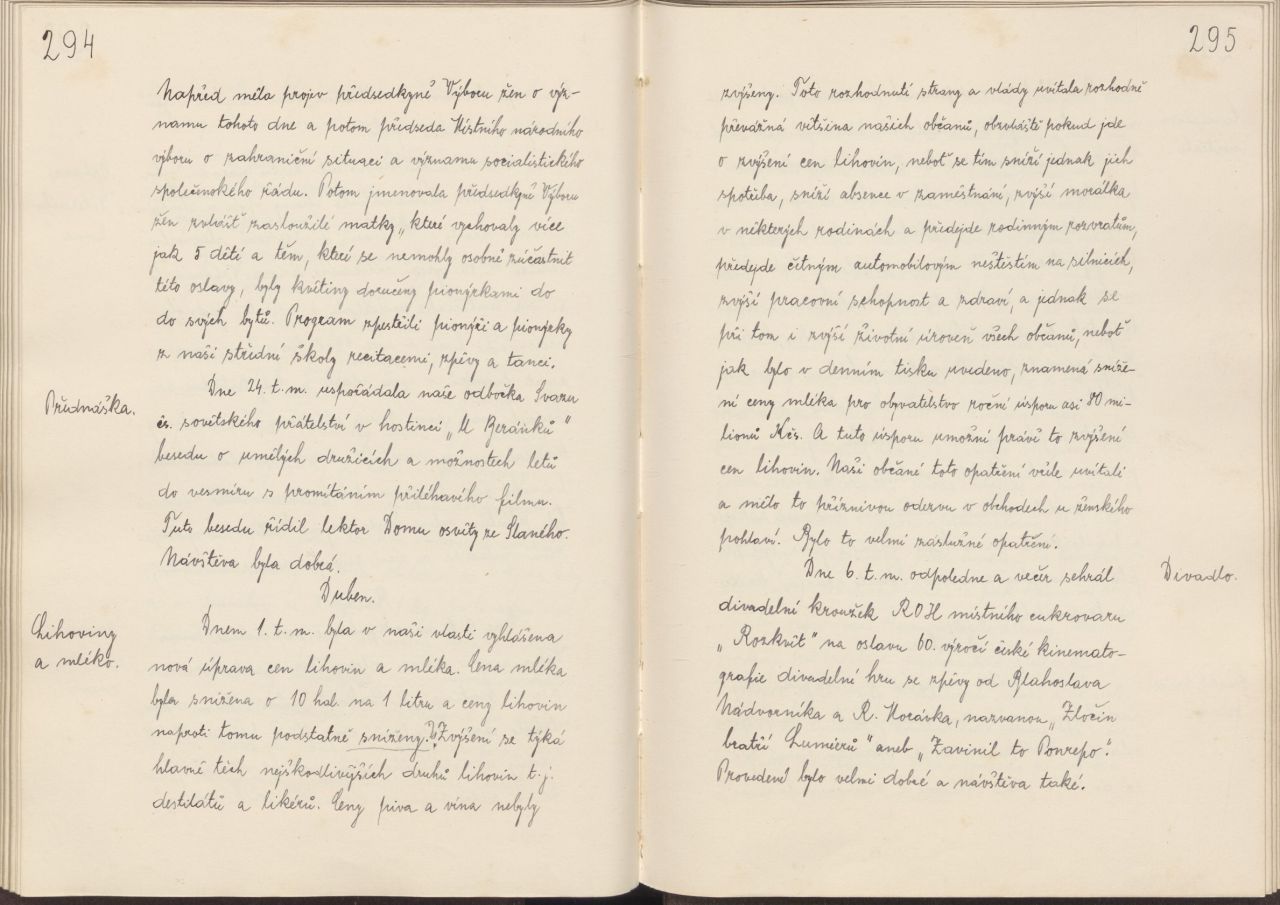 294
Napřed měla projev předsedkyně Výboru žen o výz-
namu tohoto dne a potom předseda Místního národního
výboru o zahraniční situaci a významu socialistického
společenského řádu. Potom jmenovala předsedkyně Výboru
žen zvlášť zasloužilé matky, které vychovaly více
jak 5 dětí a těm, které se nemohly osobně zúčastnit
této oslavy, byly květiny doručeny pionýrkami do
do svých bytů. Program zpestřili pionýři a pionýrky
z naší střední školy recitacemi, zpěvy a tanci.
Přednáška.
Dne 24. t. m. uspořádala naše odbočka Svazu
čs. sovětského přátelství v hostinci „U Beránků"
besedu o umělých družicích a možnostech letů
do vesmíru s promítáním přiléhavého filmu.
Tuto besedu řídil lektor Domu osvěty ze Slaného.
Návštěva byla dobrá.
Duben.
Lihoviny
a mléko.
Dnem 1. t. m. byla v naší vlasti vyhlášena
nová úprava cen lihovin a mléka. Cena mléka
byla snížena o 10 hal. na 1 litru a ceny lihovin
naproti tomu podstatně sníženy. Zvýšení se týká
hlavně těch nejškodlivějších druhů lihovin t. j.
destilátů a likérů. Ceny piva a vína nebyly
295
zvýšeny. Toto rozhodnutí strany a vlády uvítala rozhodně
převážná většina našich občanů, obzvláště pokud jde
o zvýšení cen lihovin, neboť se tím sníží jednak jich
spotřeba, sníží absence v zaměstnání, zvýší morálka
v některých rodinách a předejde rodinným rozvratům,
předejde četným automobilovým neštěstím na silnicích,
zvýší pracovní schopnost a zdraví, a jednak se
při tom i zvýší životní úroveň všech občanů, neboť
jak bylo v denním tisku uvedeno, znamená sníže-
ní ceny mléka pro obyvatelstvo roční úsporu asi 80 mi-
lionů Kčs. A tuto úsporu umožní právě to zvýšení
cen lihovin. Naši občané toto opatření vřele uvítali
a mělo to příznivou odezvu v obchodech u ženského
pohlaví. Bylo to velmi záslužné opatření.
Divadlo.
Dne 6. t. m. odpoledne a večer sehrál
divadelní kroužek ROH místního cukrovaru
„Rozkvět" na oslavu 60. výročí české kinemato-
grafie divadelní hru se zpěvy od Blahoslava
Nádvorníka a R. Morávka, nazvanou „Zločin
bratří Lumiérů" aneb „Zavinil to Ponrepo".
Provedení bylo velmi dobré a návštěva také.